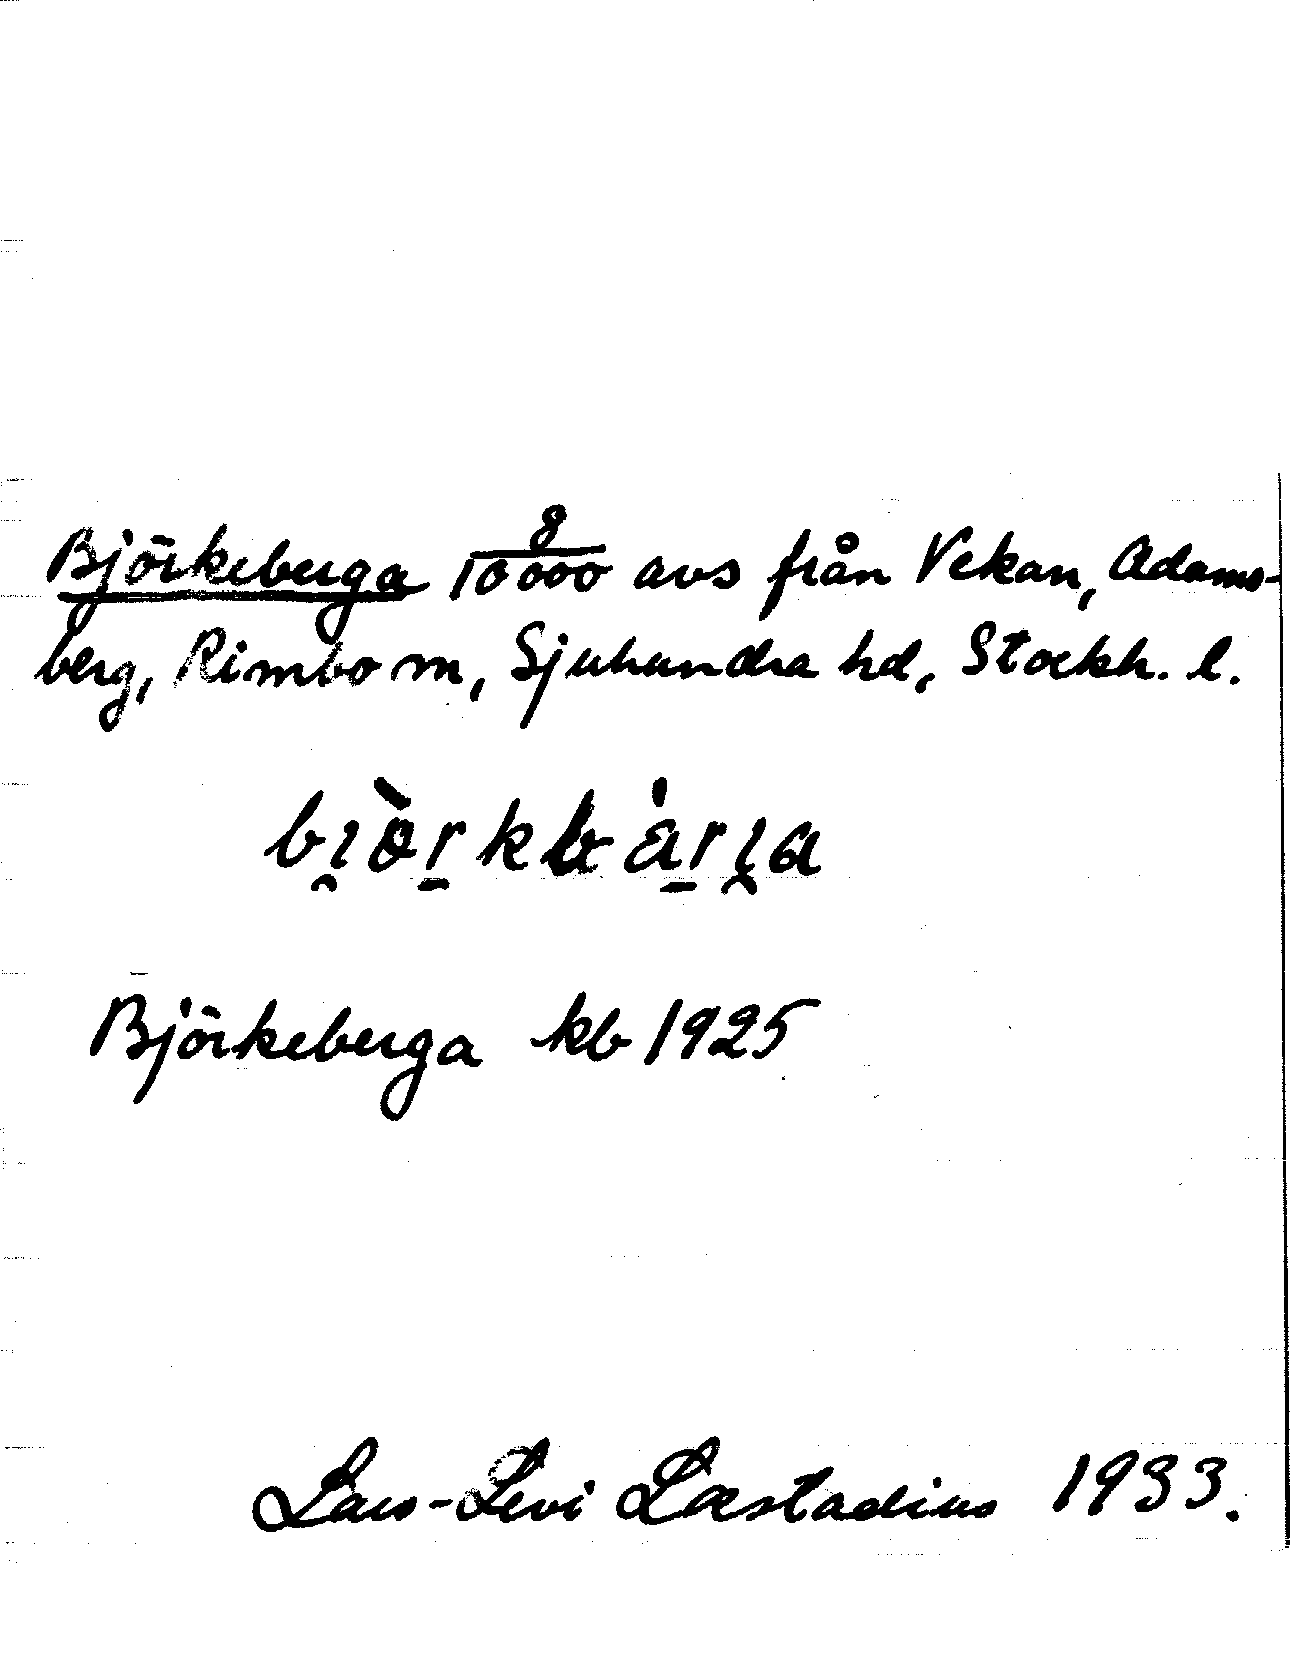 Björkeberga 8/10000 avs från Vekan, Adams-
berg, Rimbo sn, Sjuhundra hd, Stockh. l.
bı̯òṟkbå̀ṟı̯a
Björkeberga kb 1925
Lars-Levi Læstadius 1933.